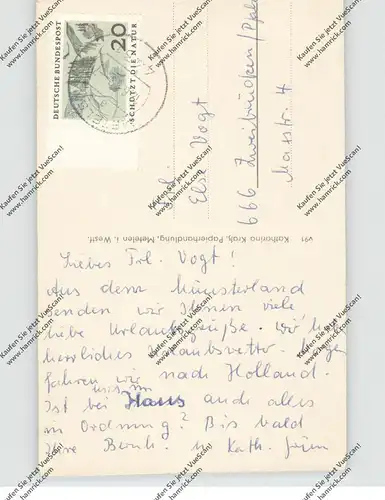 DEUTSCHE BUNDESPOST
20
SCHÜTZT DIE NATUR
Frl.
Elsa Vogt
666 Zweibrücken / Pfalz
4
Katharina Kralj, Papierhandlung, Metelen i. Westf.
Liebes Frl. Vogt!
Aus dem Münsterland
senden wir Ihnen viele
liebe Urlaubsgrüße. Wir
herrliches Urlaubswetter. Morgen
fahren wir nach Holland.
Ist bei im Haus auch alles
in Ordnung? Bis bald
Ihre Bernh. u. Kath.
Kaufen Sie jetzt VueScan!
www.hamrick.com